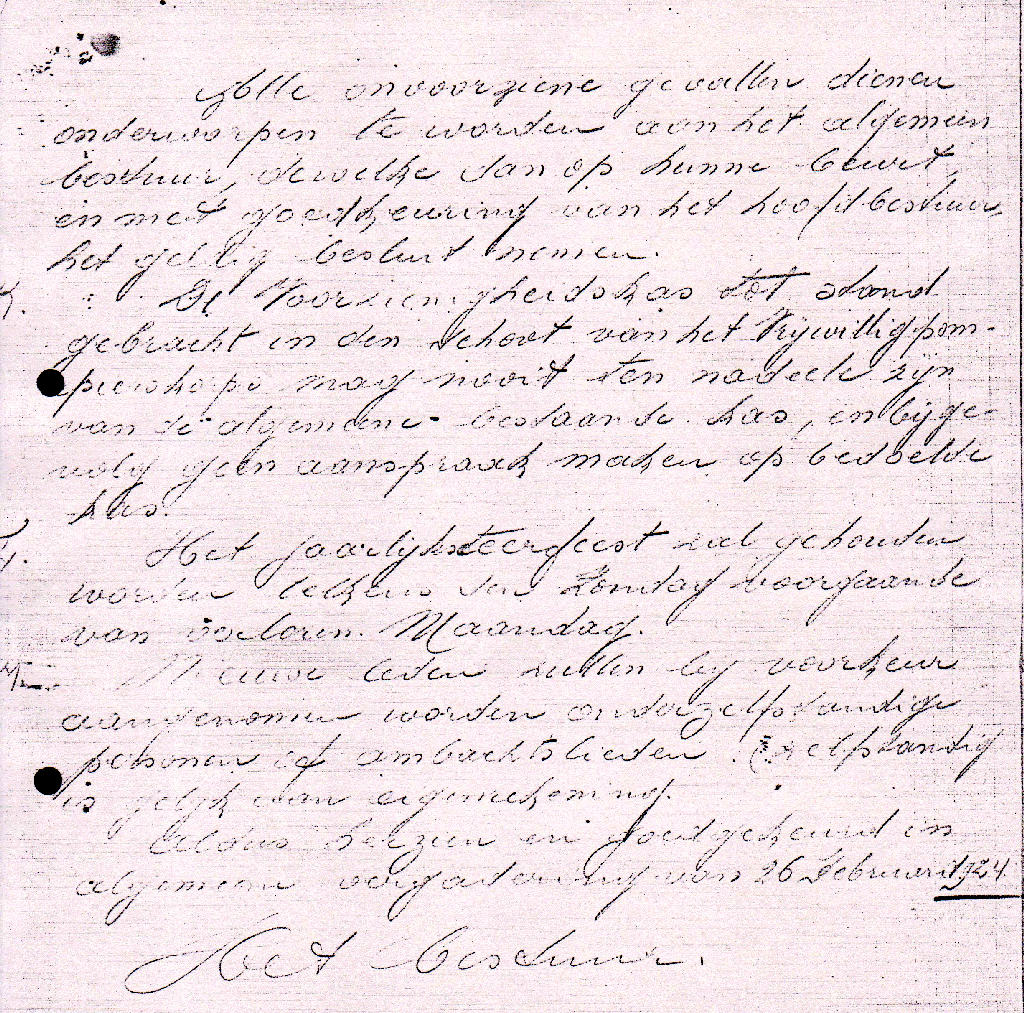 Alle onvoorziene gevallen dienen
onderworpen te worden aan het algemeen
bestuur, dewelke dan op hunne beurt,
en met goedkeuring van het hoofdbestuur,
het geldig besluit nemen.
De Voorzienigheidskas tot stand
gebracht in den schoot van het Vrijwillig pom-
pierskorps mag nooit ten nadeele zijn
van de algemene bestaande kas, en bijge-
volg geen aanspraak maken op bedoelde
kas.
Het jaarlijks teerfeest zal gehouden
worden telkens den Zondag voorgaande
van verloren Maandag.
Nieuwe leden zullen bij voorkeur
aangenomen worden onder zelfstandige
personen of ambachtslieden. (zelfstandig
is gelijk aan eigen rekening.
Aldus herzien en goedgekeurd in
algemeen vergadering van 26 Februari 1924.
Het bestuur.